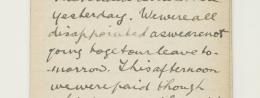 yesterday. We were all
disappointed as we are not
going to get our leave to-
morrow. This afternoon
we were paid though